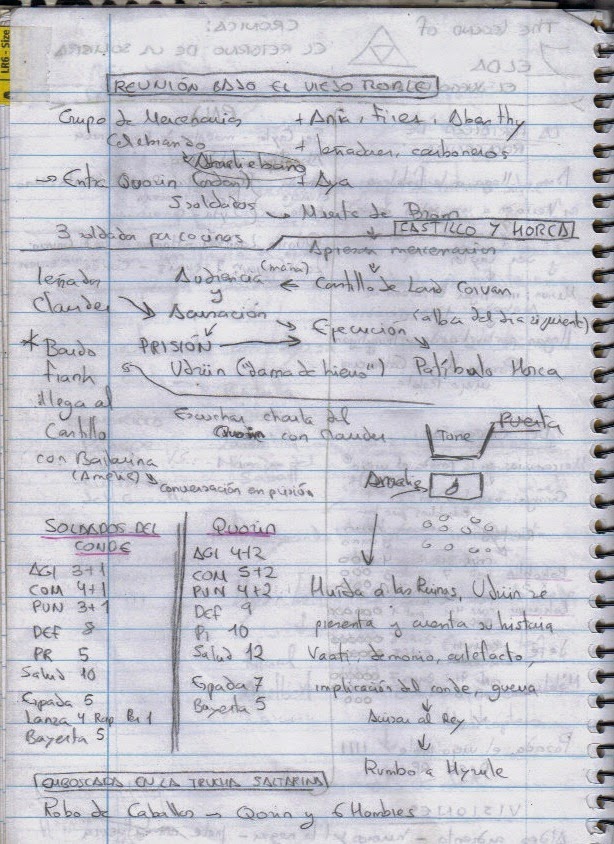 LR6 - Size
REUNIÓN BAJO EL VIEJO ROBLE
Grupo de Mercenarios
Celebrando
→ Entra Quorin
5 soldados
3 soldados por cocinas
+ Anja, Fires, Abanthy
+ leñadores, carboneros
+ Aya
→ Muerte de Bram
CASTILLO Y HORCA
Apresan mercenarios
Castillo de Lord Corvan
Audiencia (mañana)
y
Acusación
leñador
Clauder
PRISIÓN
Ejecución
(alba del día siguiente)
Udriin ("dama de hierro")
Patíbulo Horca
* Bardo
Frank
llega al
Castillo
con Bailarina
(Amelie)
Escuchar charla del
Quorin con Clauder
conversación en prisión
Torre
Puerta
Amelie
SOLDADOS DEL
CONDE
AGI 3+1
COM 4+1
PUN 3+1
DEF 8
PR 5
Salud 10
Espada 5
Lanza 4
Bayesta 5
QUORIN
AGI 4+2
COM 5+2
PUN 4+2
DEF 9
10
Salud 12
Espada 7
Bayesta 5
Huida a las Ruinas, Udriin se
presenta y cuenta su historia
Vaati, demonio, artefacto,
implicación del conde, guerra
↓
Avisar al Rey
↓
Rumbo a Hyrule
EMBOSCADA EN LA TRUCHA SALTARINA
Robo de Caballos → Qorin y 6 Hombres